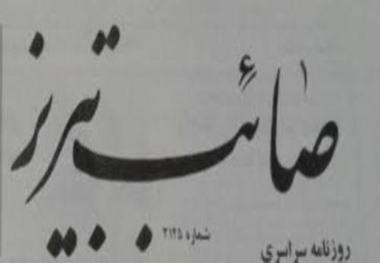 صائب تبریز
شماره ۲۱۲۵
روزنامه سراسری